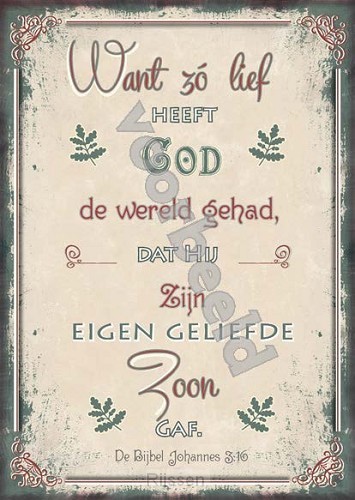 Want zó lief
HEEFT
GOD
de wereld gehad,
DAT HIJ
Zijn
EIGEN GELIEFDE
Zoon
GAF.
De Bijbel Johannes 3:16
voorbeeld
Rijssen